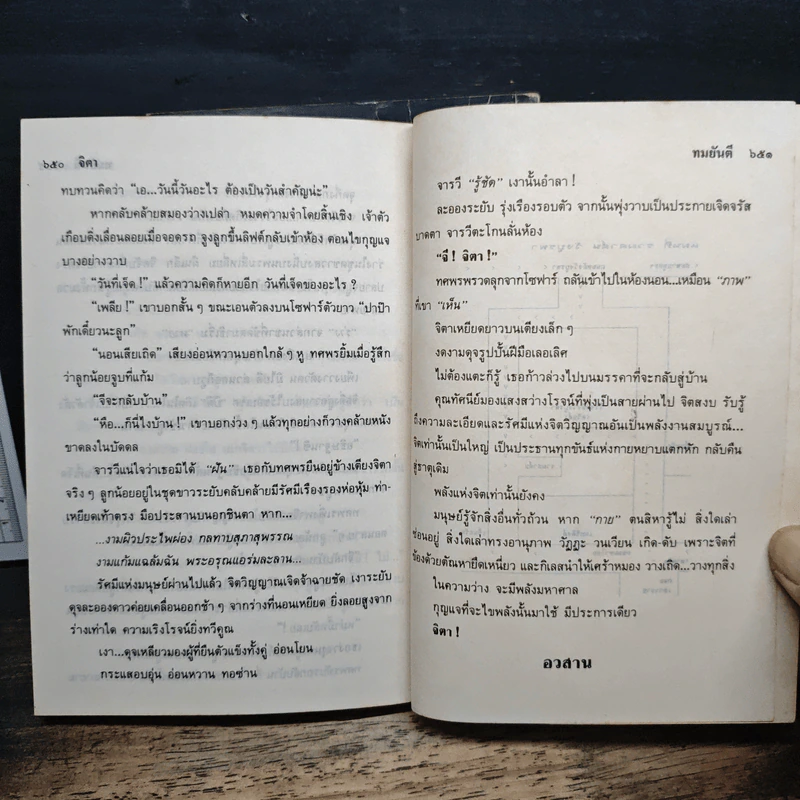 ๖๕๐ จิตา
ทบทวนคิดว่า “เอ...วันนี้วันอะไร ต้องเป็นวันสำคัญน่ะ”
หากคลับคล้ายสมองว่างเปล่า หมดความจำโดยสิ้นเชิง เจ้าตัว
เกือบดิ่งเลื่อนลอยเมื่อจอดรถ จูงลูกขึ้นลิฟต์กลับเข้าห้อง ตอนไขกุญแจ
บางอย่างวาบ
“วันที่เจ็ด !” แล้วความคิดก็หายอีก วันที่เจ็ดของอะไร ?
“เพลีย !” เขาบอกสั้น ๆ ขณะเอนตัวลงบนโซฟาร์ตัวยาว “ปาป๊า
พักเดี๋ยวนะลูก”
“นอนเสียเถิด” เสียงอ่อนหวานบอกใกล้ ๆ หู ทศพรยิ้มเมื่อรู้สึก
ว่าลูกน้อยจูบที่แก้ม
“จีจะกลับบ้าน”
“หือ...ก็นี่ไงบ้าน !” เขาบอกง่วง ๆ แล้วทุกอย่างก็วางคล้ายหนัง
ขาดลงในบัดดล
จารวีแน่ใจว่าเธอมิได้ “ฝัน” เธอกับทศพรยืนอยู่ข้างเตียงจิตา
จริง ๆ ลูกน้อยอยู่ในชุดขาวระยับคลับคล้ายมีรัศมีเรืองรองห่อหุ้ม ท่า-
เหยียดเท้าตรง มือประสานบนอกชินตา หาก...
...งามผิวประไพผ่อง กลทาบสุภาสุพรรณ
งามแก้มแฉล้มฉัน พระอรุณแอร่มละลาน...
รัศมีแห่งมนุษย์ผ่านไปแล้ว จิตวิญญาณเจิดจ้าฉายชัด เงาระยับ
ดุจละอองดาวค่อยเคลื่อนออกช้า ๆ จากร่างที่นอนเหยียด ยิ่งลอยสูงจาก
ร่างเท่าใด ความเริงโรจน์ยิ่งทวีคูณ
เงา...ดุจเหลียวมองผู้ที่ยืนตัวแข็งทั้งคู่ อ่อนโยน
กระแสอบอุ่น อ่อนหวาน ทอซ่าน
ทมยันตี ๖๕๑
จารวี “รู้ชัด” เงานั้นอำลา !
ละอองระยับ รุ่งเรืองรอบตัว จากนั้นพุ่งวาบเป็นประกายเจิดจรัส
บาดตา จารวีตะโกนลั่นห้อง
“จี ! จิตา !”
ทศพรพรวดลุกจากโซฟาร์ ถลันเข้าไปในห้องนอน...เหมือน “ภาพ”
ที่เขา “เห็น”
จิตาเหยียดยาวบนเตียงเล็ก ๆ
งดงามดุจรูปปั้นฝีมือเลอเลิศ
ไม่ต้องแตะก็รู้ เธอก้าวล่วงไปบนมรรคาที่จะกลับสู่บ้าน
คุณทัศนีย์มองแสงสว่างโรจน์ที่พุ่งเป็นสายผ่านไป จิตสงบ รับรู้
ถึงความละเอียดและรัศมีแห่งจิตวิญญาณอันเป็นพลังงานสมบูรณ์...
จิตเท่านั้นเป็นใหญ่ เป็นประธานทุกขันธ์แห่งกายหยาบแตกหัก กลับคืน
สู่ธาตุเดิม
พลังแห่งจิตเท่านั้นยังคง
มนุษย์รู้จักสิ่งอื่นทั่วถ้วน หาก “กาย” ตนสิหารู้ไม่ สิ่งใดเล่า
ซ่อนอยู่ สิ่งใดเล่าทรงอานุภาพ วัฏฏะ วนเวียน เกิด-ดับ เพราะจิตที่
ร้องด้วยตัณหายึดเหนี่ยว และกิเลสนำให้เศร้าหมอง วางเถิด...วางทุกสิ่ง
ในความว่าง จะมีพลังมหาศาล
กุญแจที่จะไขพลังนั้นมาใช้ มีประการเดียว
จิตา !
อวสาน